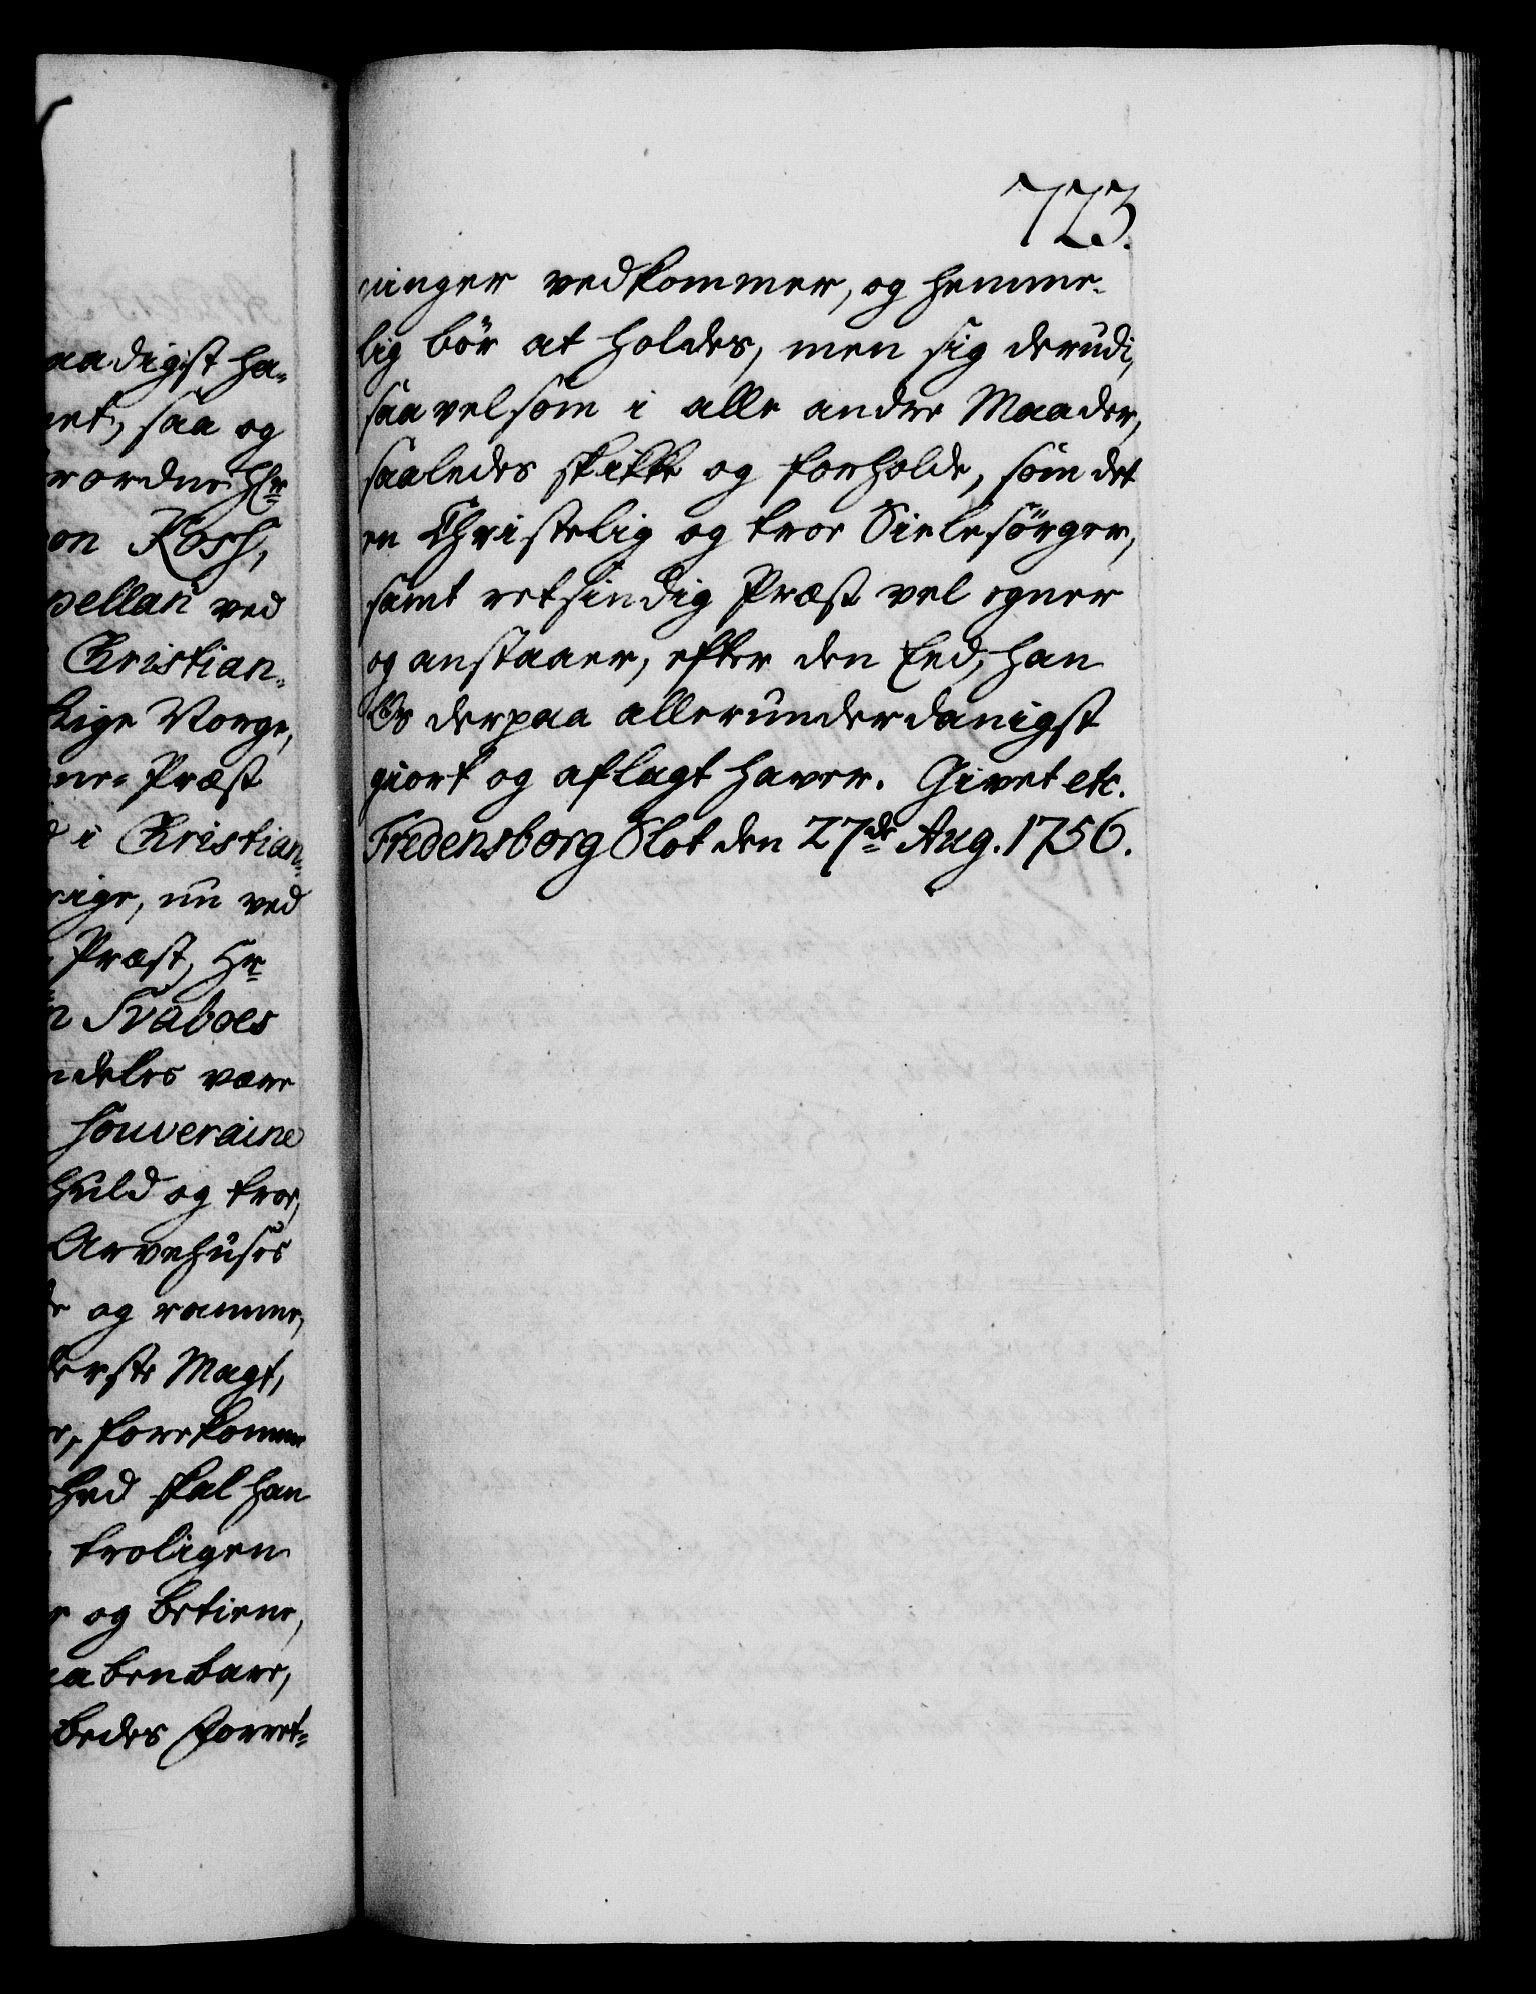 aadigst ha-
et, saa og
rordne Hr
on Kosch,
pellan ved
Christian-
Rige Norge,
ne- Præst
i Christian-
rige, nu ved
Præst, Hr
n Svaboes
ndeles være
Souveraine
huld og troe,
Arvehuses
og ramme,
derste Magt,
e, forekomme
hed skal han
troligen
og betiene,
aabenbare,
bedes Forret-
723.
ninger vedkommer, og hemme-
lig bör at holdes, men sig derudi,
saavelsom i alle andre Maader,
saaledes skikke og forholde, som det
en Christelig og troe Sielesörger,
samt retsindig Præst vel egner
og anstaaer, efter den Eed, han
Os derpaa allerunderdanigst
giort og aflagt haver. Givet etc.
Fredensborg Slot den 27de Aug. 1756.